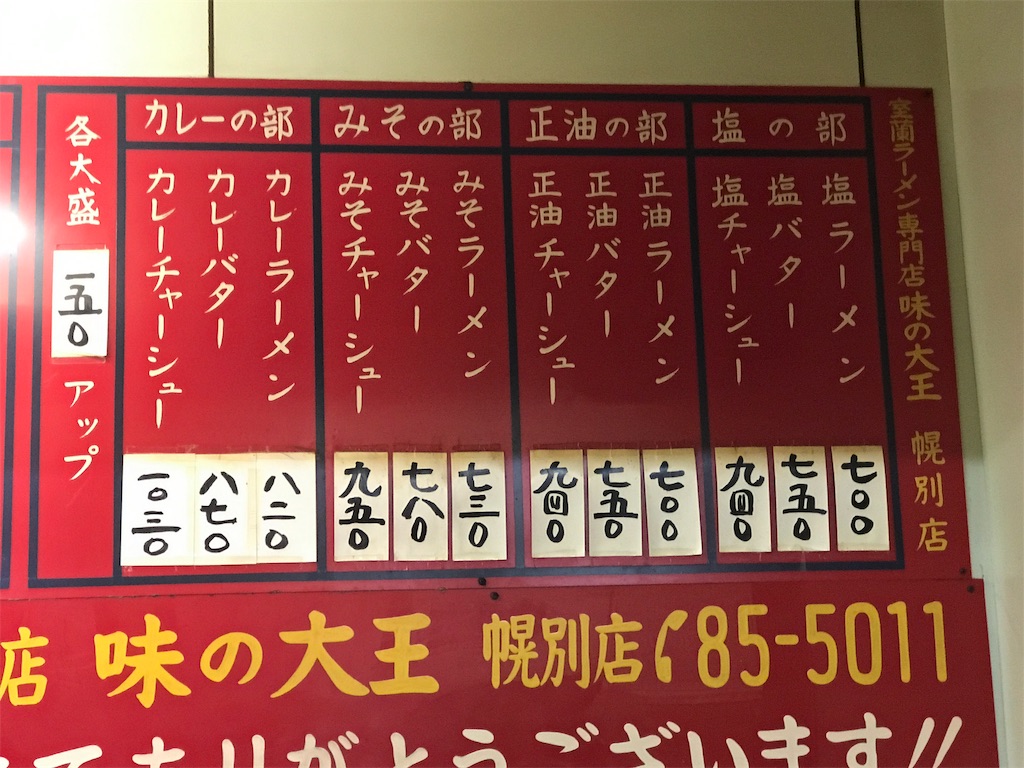 室蘭ラーメン専門店味の大王 幌別店
塩の部
塩ラーメン 七〇〇
塩バター 七五〇
塩チャーシュー 九四〇
正油の部
正油ラーメン 七〇〇
正油バター 七五〇
正油チャーシュー 九四〇
みその部
みそラーメン 七三〇
みそバター 七八〇
みそチャーシュー 九五〇
カレーの部
カレーラーメン 八二〇
カレーバター 八七〇
カレーチャーシュー 一〇三〇
各大盛 一五〇 アップ
店 味の大王 幌別店 85-5011
てありがとうございます!!